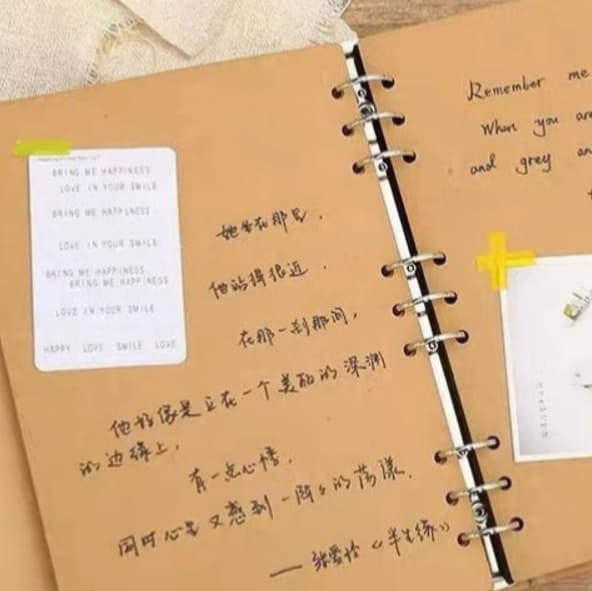 BRING ME HAPPINESS
LOVE IN YOUR SMILE
BRING ME HAPPINESS
LOVE IN YOUR SMILE
BRING ME HAPPINESS
BRING ME HAPPINESS
LOVE IN YOUR SMILE
HAPPY LOVE SMILE LOVE
她坐在那里，
他站得很近，
在那一刹那间，
他好像是立在一个美丽的深渊
的边缘上，
有一点心悸，
同时心里又感到一阵阵的荡漾。
——张爱玲《半生缘》
Remember me
When you are
and grey an